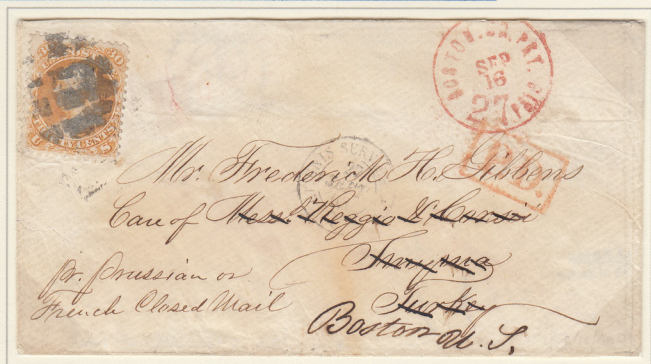 BOSTON. BR. PKT.
SEP
16
27
PAID
P.D.
Mr. Frederick H. Gibbens
Care of Mess. Reggio & Corsi
Smyrna
Turkey
Boston U. S.
Pr. Prussian or
French Closed Mail